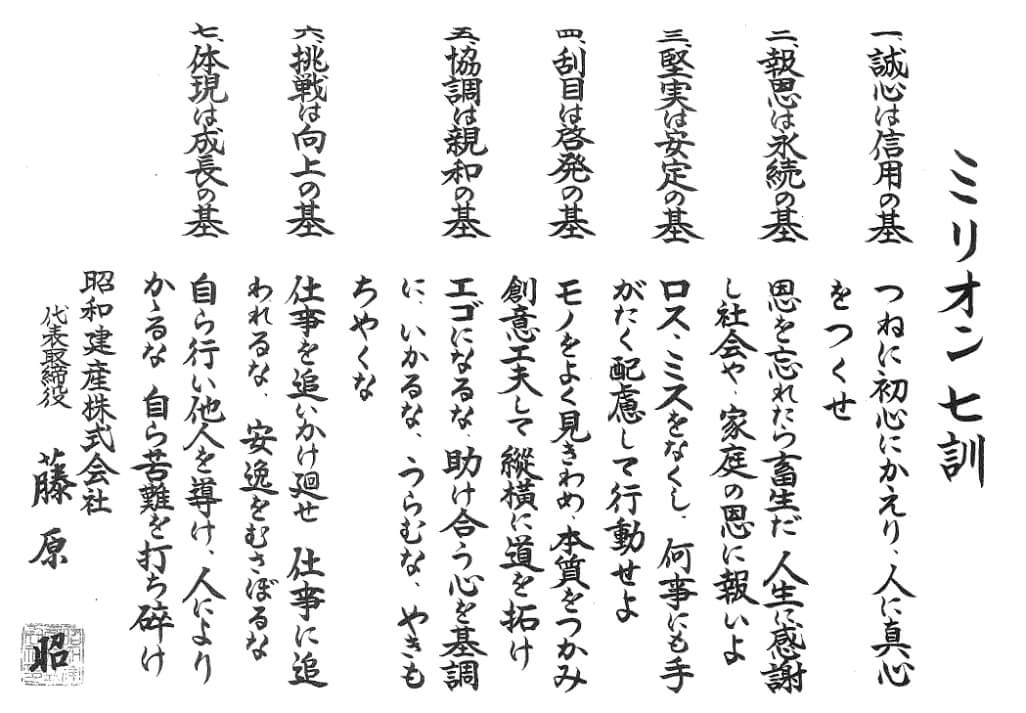 ミリオン七訓
一、誠心は信用の基
つねに初心にかえり、人に真心
をつくせ
二、報恩は永続の基
恩を忘れたら畜生だ 人生に感謝
し社会や、家庭の恩に報いよ
三、堅実は安定の基
ロス、ミスをなくし、何事にも手
がたく配慮して行動せよ
四、刮目は啓発の基
モノをよく見きわめ、本質をつかみ
創意工夫して縱横に道を拓け
五、協調は親和の基
エゴになるな、助け合う心を基調
に、いかるな、うらむな、やきも
ちやくな
六、挑戦は向上の基
仕事を追いかけ廻せ 仕事に追
われるな、安逸をむさぼるな
七、体現は成長の基
自ら行い他人を導け、人により
かゝるな 自ら苦難を打ち碎け
昭和建産株式会社
代表取締役 藤原 昭